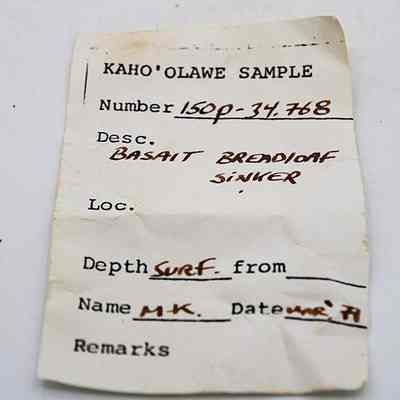 KAHO'OLAWE SAMPLE
Number 150p-34.768
Desc.
BASALT BREADLOAF
SINKER
Loc.
Depth SURF. from
Name M.K. Date MAR.
Remarks